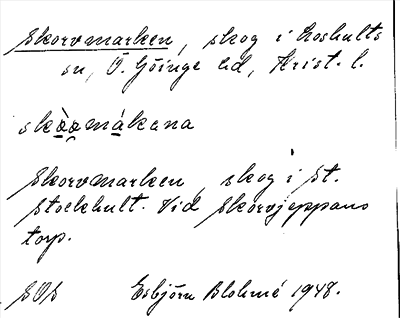 Skorvmarken, skog i Loshults
sn, Ö. Göinge hd, Krist. l.
skò̱a̱má̱kana
Skorvmarken, skog i St.
Stockhult. Vid Skorvjeppans
torp.
SOS Esbjörn Blohmé 1948.